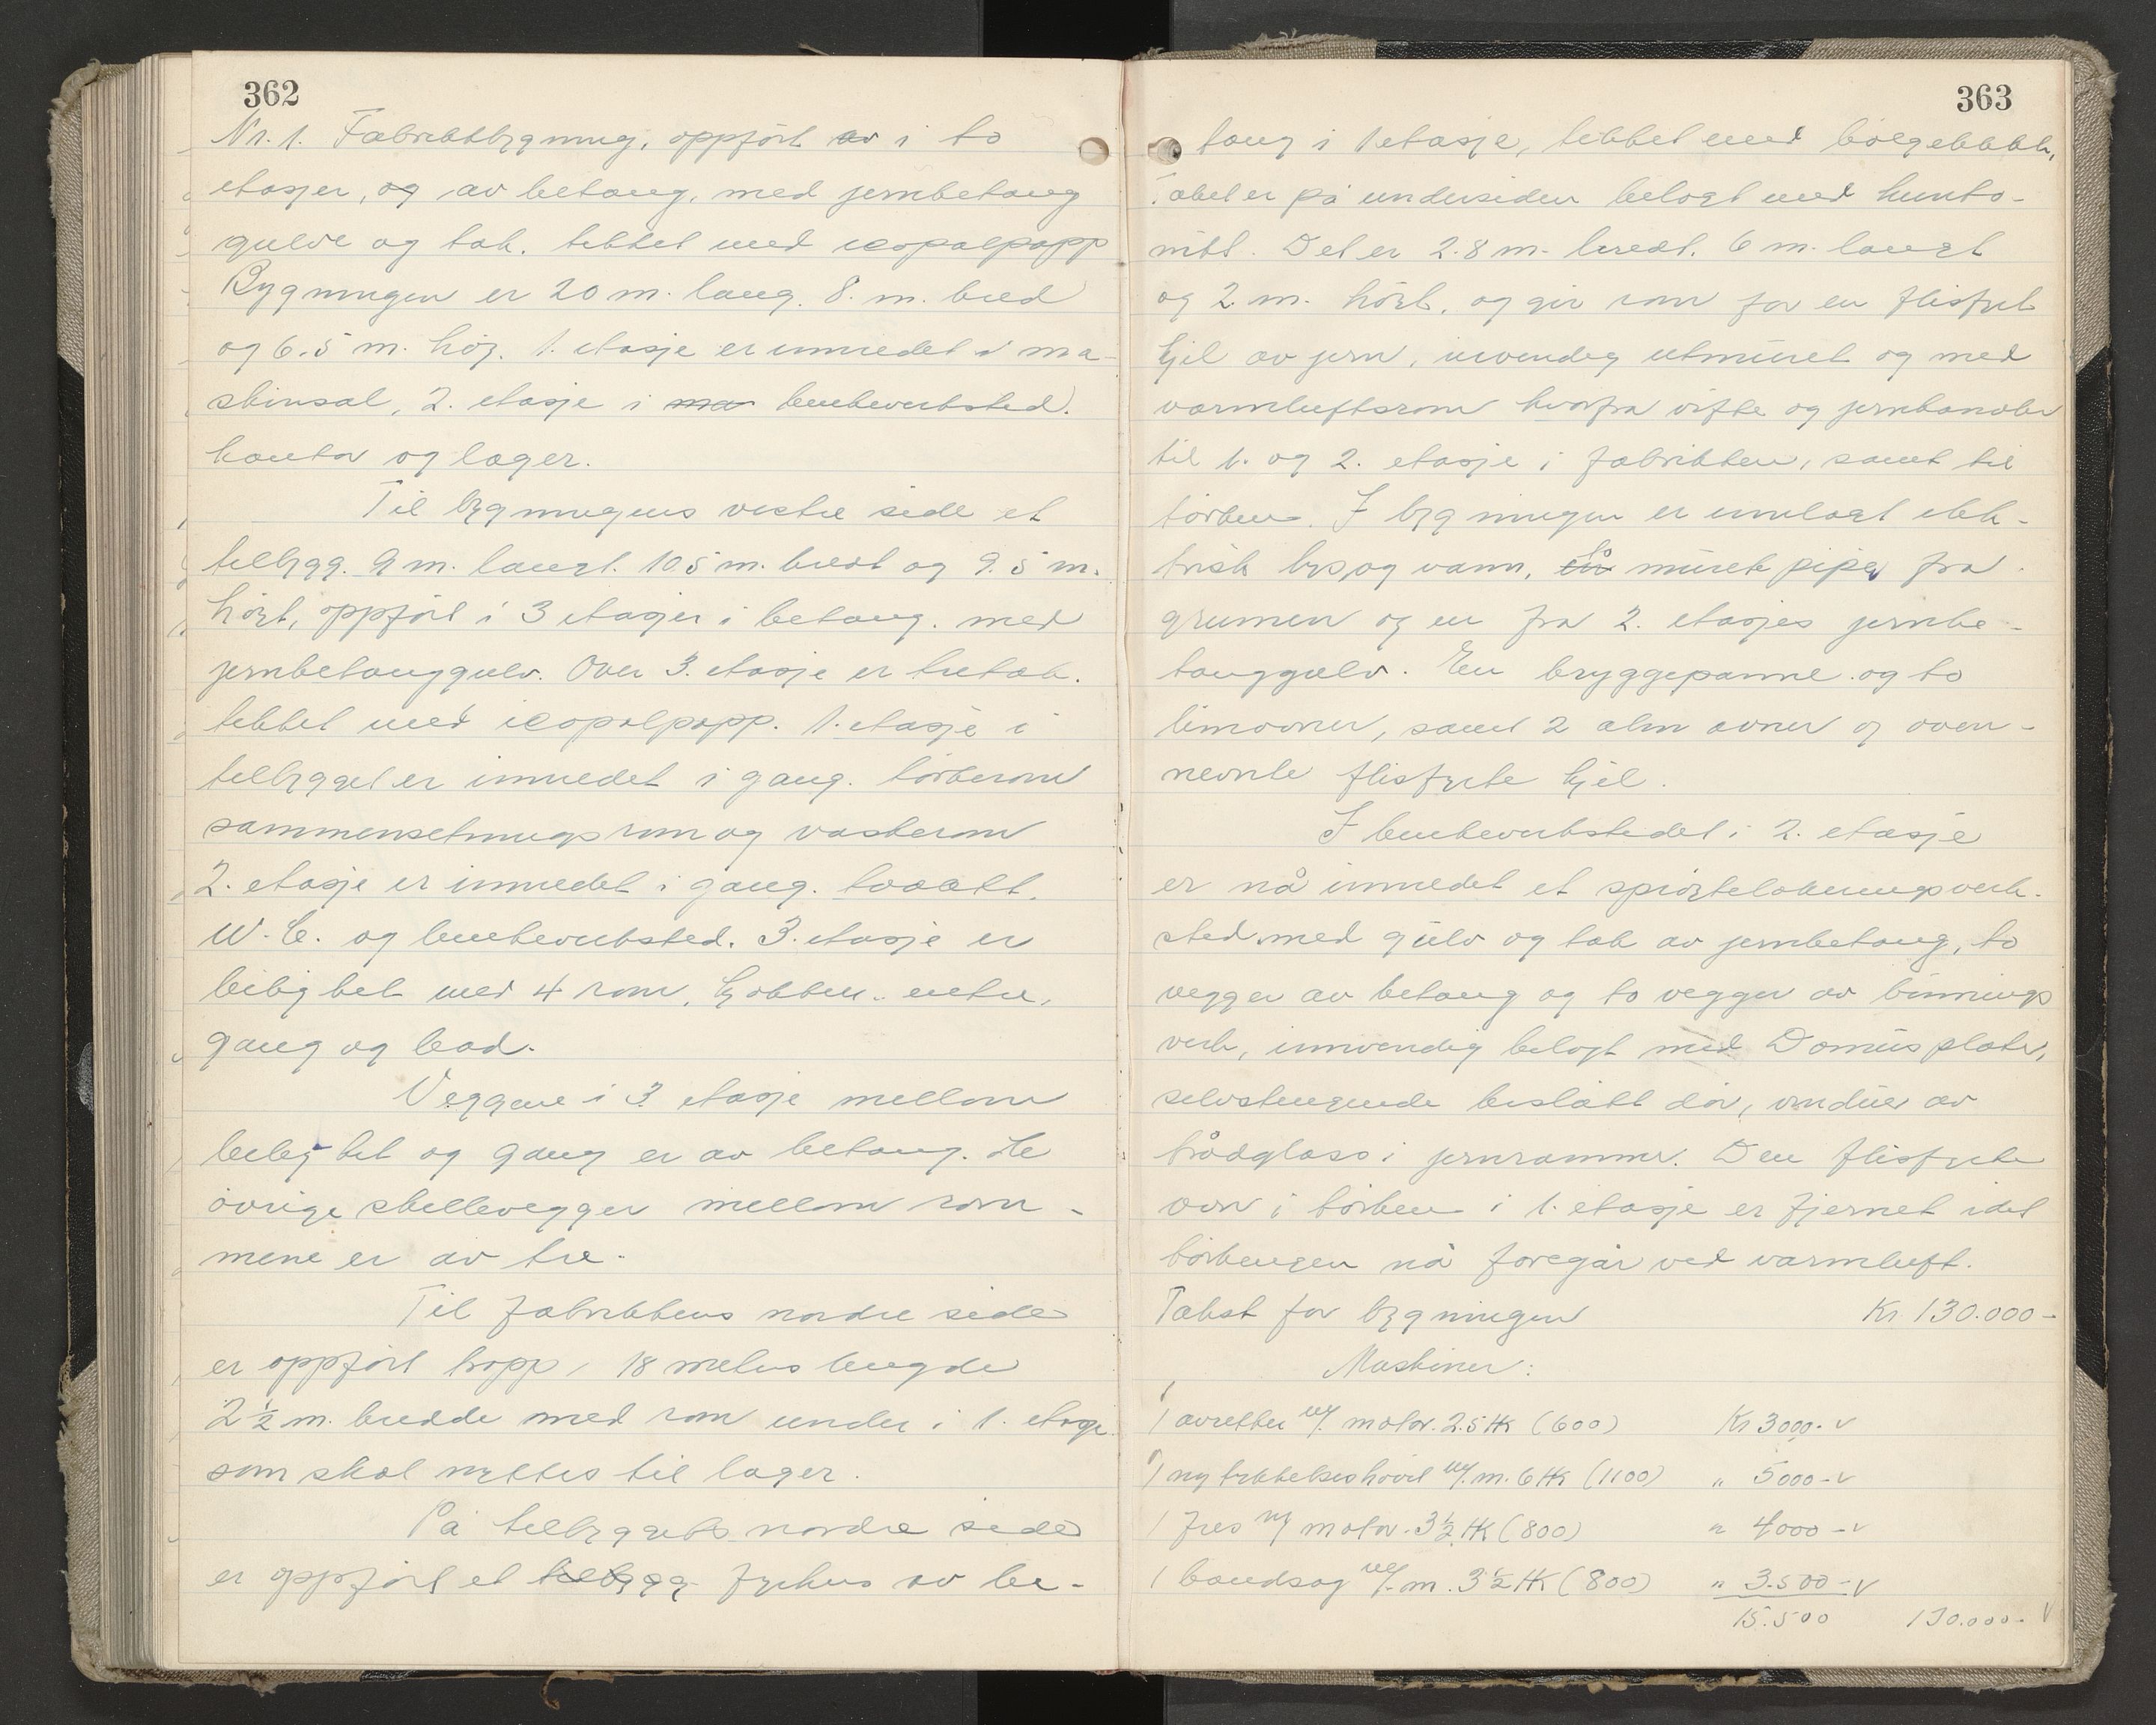 362
Nr. 1. Fabrikkbygning, oppført av i to
etasjer, og av betong, med jernbetong
gulve og tak. tekket med icopalpapp
Bygningen er 20 m. lang. 8. m. bred
og 6.5 m. høg. 1. etasje er innredet i ma-
skinsal, 2. etasje i ma benkeverksted.
kontor og lager.
Til bygningens vestre side et
tilbygg. 9 m. langt. 10.5 m. bredt og 9.5 m.
høgt, oppført i 3 etasjer i betong. med
jernbetonggulv. Over 3. etasje er tretak.
tekket med icopalpapp. 1. etasje i
tilbygget er innredet i gang. tørkerom
sammensetnings rom og vaskerom
2. etasje er innredet i gang. toalett.
W.C. og benkeverksted. 3. etasje er
leilighet med 4 rom, kjøkken. entre,
gang og bad.
Veggene i 3 etasje mellom
leilighet og gang er av betong. De
øvrige skillevegger mellom rom-
mene er av tre.
Til fabrikkens nordre side
er oppført trapp i 18 meters lengde
2 1/2 m. bredde med rom under i 1. etasje
som skal nyttes til lager.
På tilbyggets nordre side
er oppført et tilbygg fyrhus av be-
363
tong i 1 etasje, tekket med bølgeblikk,
Taket er på undersiden belagt med hunto-
nitt. Det er 2.8 m. bredt. 6 m. langt
og 2. m. høgt. og gir rom for en flisfyrt
kjel av jern, invendig utmuret og med
varmluftsrom hvorfra vifte og jernkanaler
til 1. og 2. etasje i fabrikken, samt til
tørken. I bygningen er innlagt elek-
trisk lys og vann, en to murte piper fra
grunnen og en fra 2. etasjes jernbe-
tonggulv. En bryggepanne og to
limovner, samt 2 alm ovner og oven-
nevnte flisfyrte kjel.
I benkeverkstedet i 2. etasje
er nå innredet et sprøytelakeringsverk-
sted med gulv og tak av jernbetong, to
vegger av betong og to vegger av binnings
verk, innvendig belagt med Domus plater,
selvstengende beslått dør, vinduer av
trådglass i jernrammer. Den flisfyrte
ovn i tørken i 1. etasje er fjernet idet
tørkengen nå foregår ved varmluft.
Takst for bygningen Kr. 130.000-
Maskiner:
1 avretter m/. motor. 2.5 HK (600) Kr 3000.-
1 ny tykkelseshøvel m/. m. 6 HK (1100) " 5000-
1 fres m/ motor. 3 1/2 HK (800) " 4000-
1 bandsag m/. m. 3 1/2 HK (800) " 3.500-
15.500 130.000-